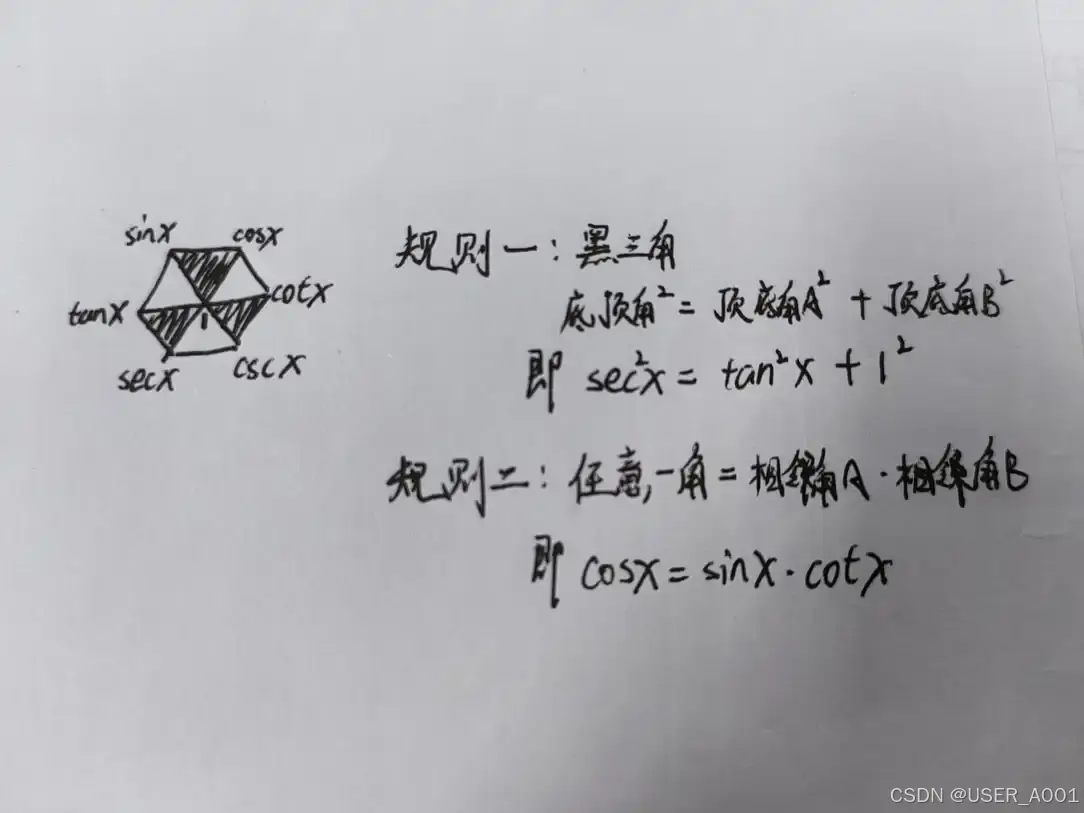 sinx cosx
tanx cotx
1
secx cscx
规则一：黑三角
底顶角² = 顶底角A² + 顶底角B²
即 sec²x = tan²x + 1²
规则二：任意一角 = 相邻角A · 相邻角B
即 cosx = sinx · cotx
CSDN @USER_A001